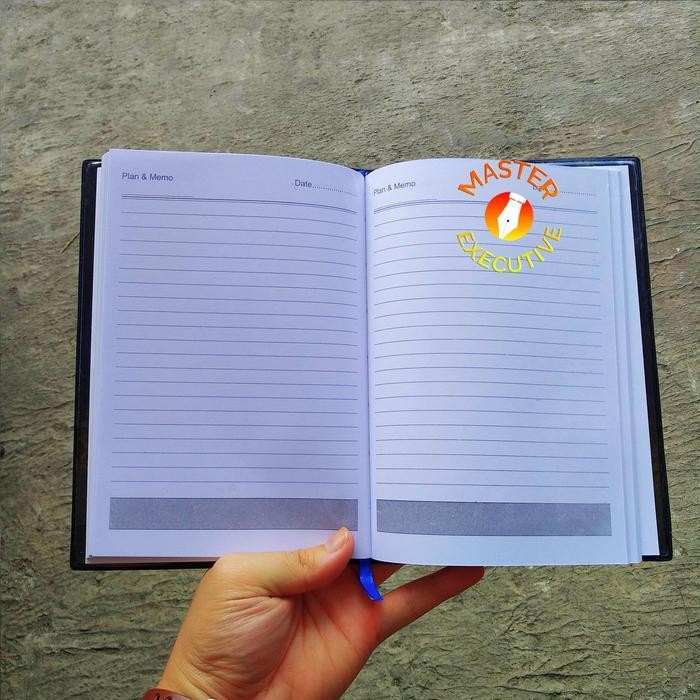 Plan & Memo
Date..............
Plan & Memo
MASTER
EXECUTIVE